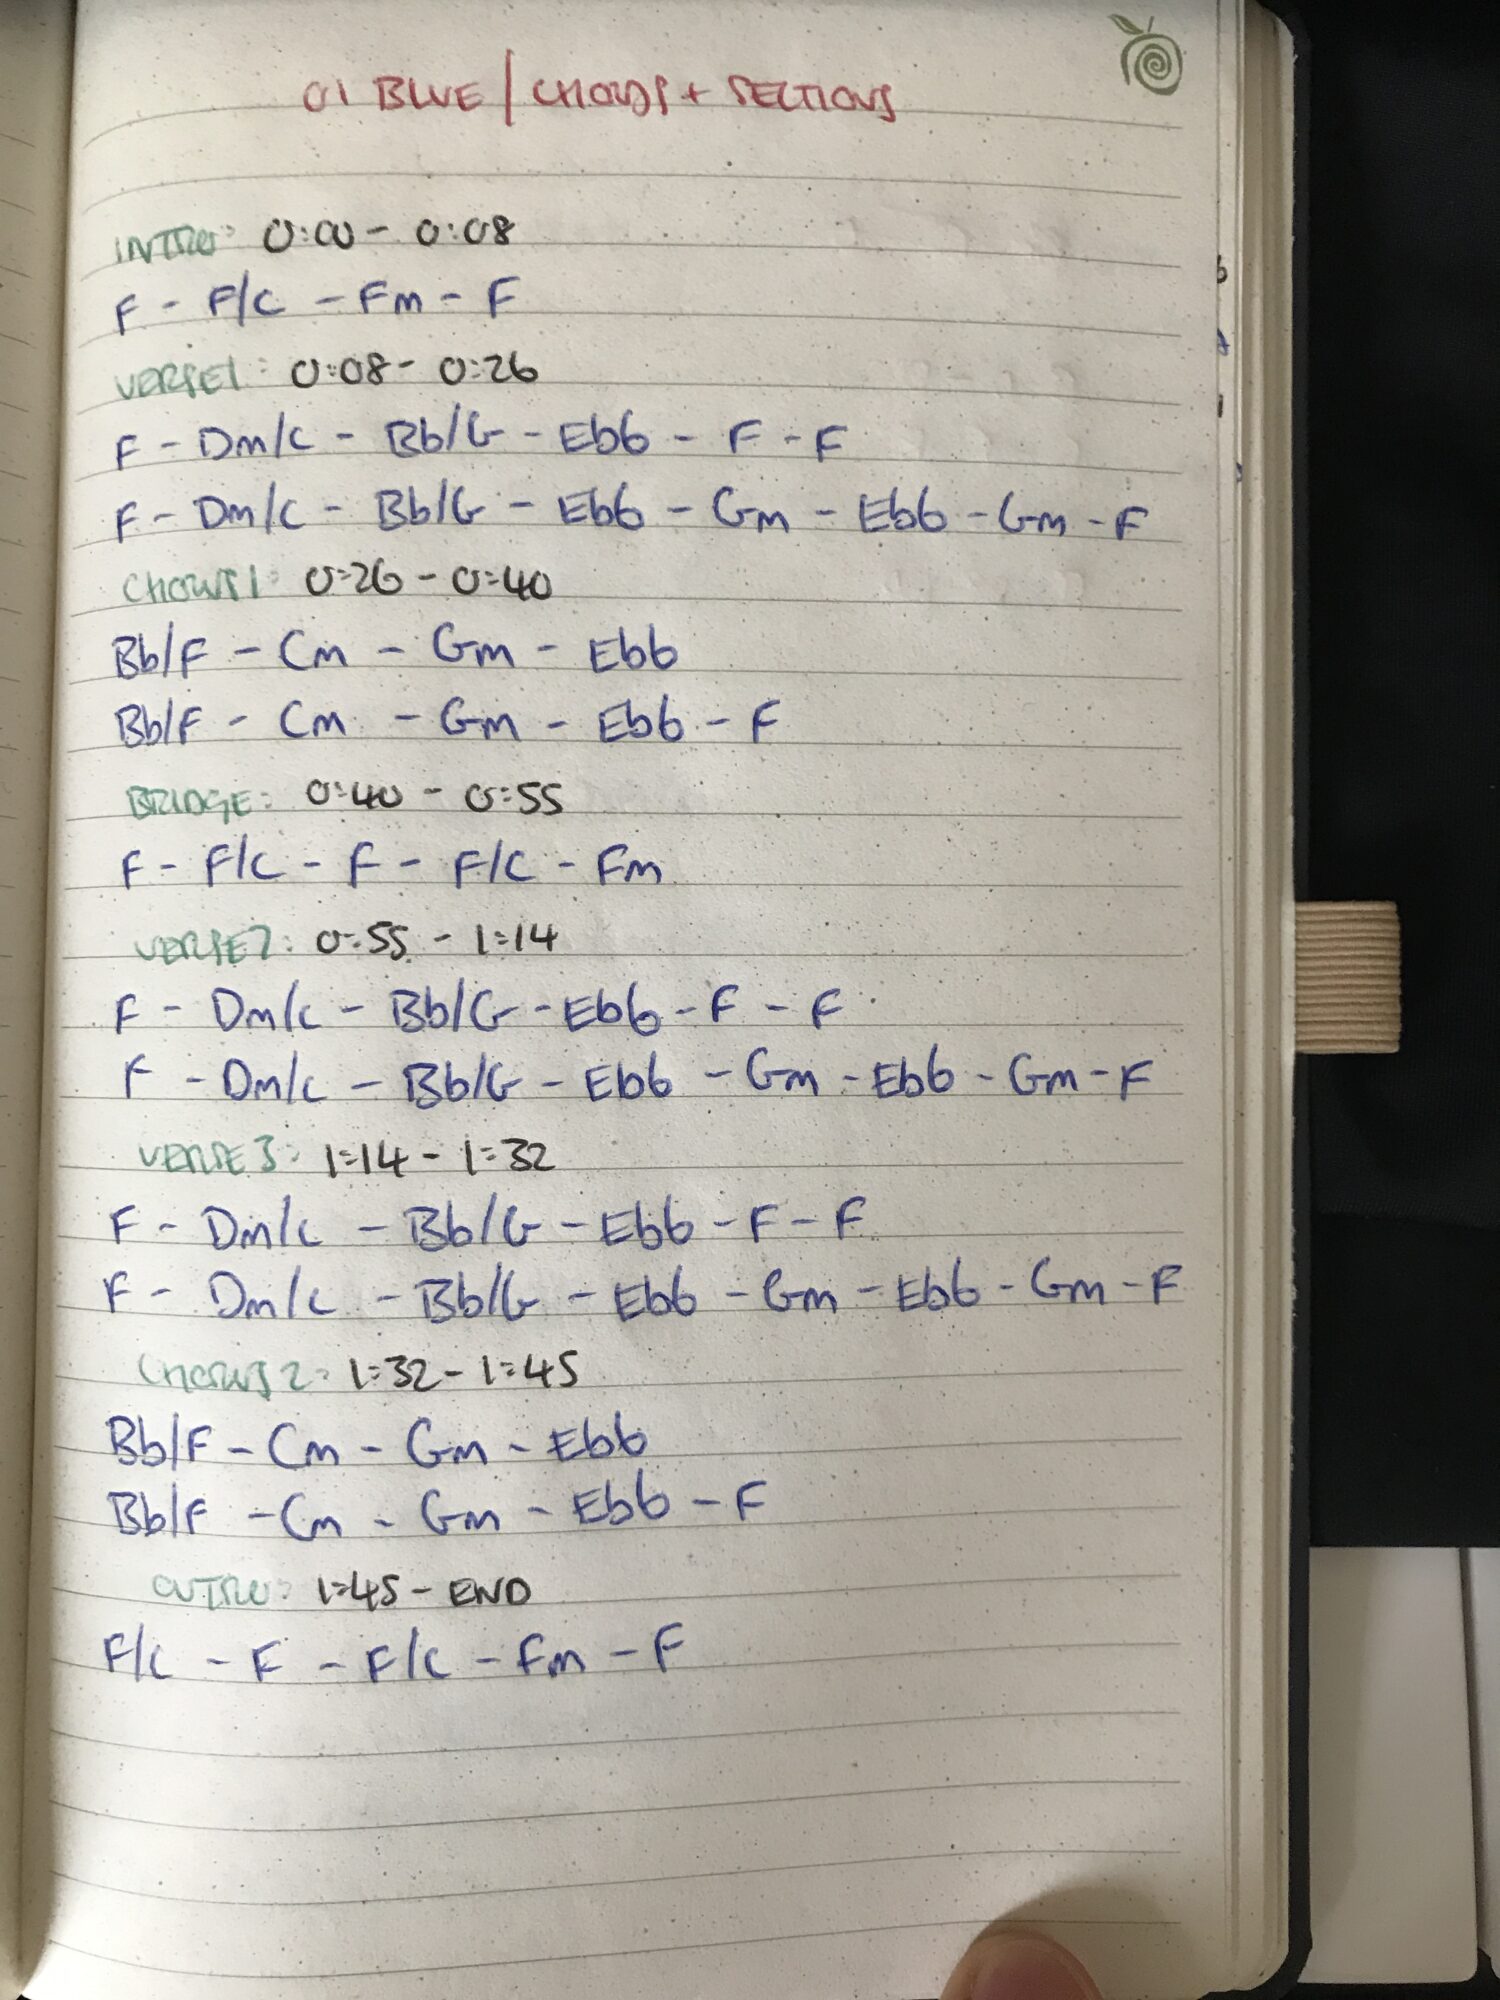 01 BLUE / CHORDS + SECTIONS
INTRO: 0:00 - 0:08
F - F/C - Fm - F
VERSE1: 0:08 - 0:26
F - Dm/C - Bb/G - Eb6 - F - F
F - Dm/C - Bb/G - Eb6 - Gm - Eb6 - Gm - F
CHORUS1: 0:26 - 0:40
Bb/F - Cm - Gm - Eb6
Bb/F - Cm - Gm - Eb6 - F
BRIDGE: 0:40 - 0:55
F - F/C - F - F/C - Fm
VERSE2: 0:55 - 1:14
F - Dm/C - Bb/G - Eb6 - F - F
F - Dm/C - Bb/G - Eb6 - Gm - Eb6 - Gm - F
VERSE3: 1:14 - 1:32
F - Dm/C - Bb/G - Eb6 - F - F
F - Dm/C - Bb/G - Eb6 - Gm - Eb6 - Gm - F
CHORUS2: 1:32 - 1:45
Bb/F - Cm - Gm - Eb6
Bb/F - Cm - Gm - Eb6 - F
OUTRO: 1:45 - END
F/C - F - F/C - Fm - F